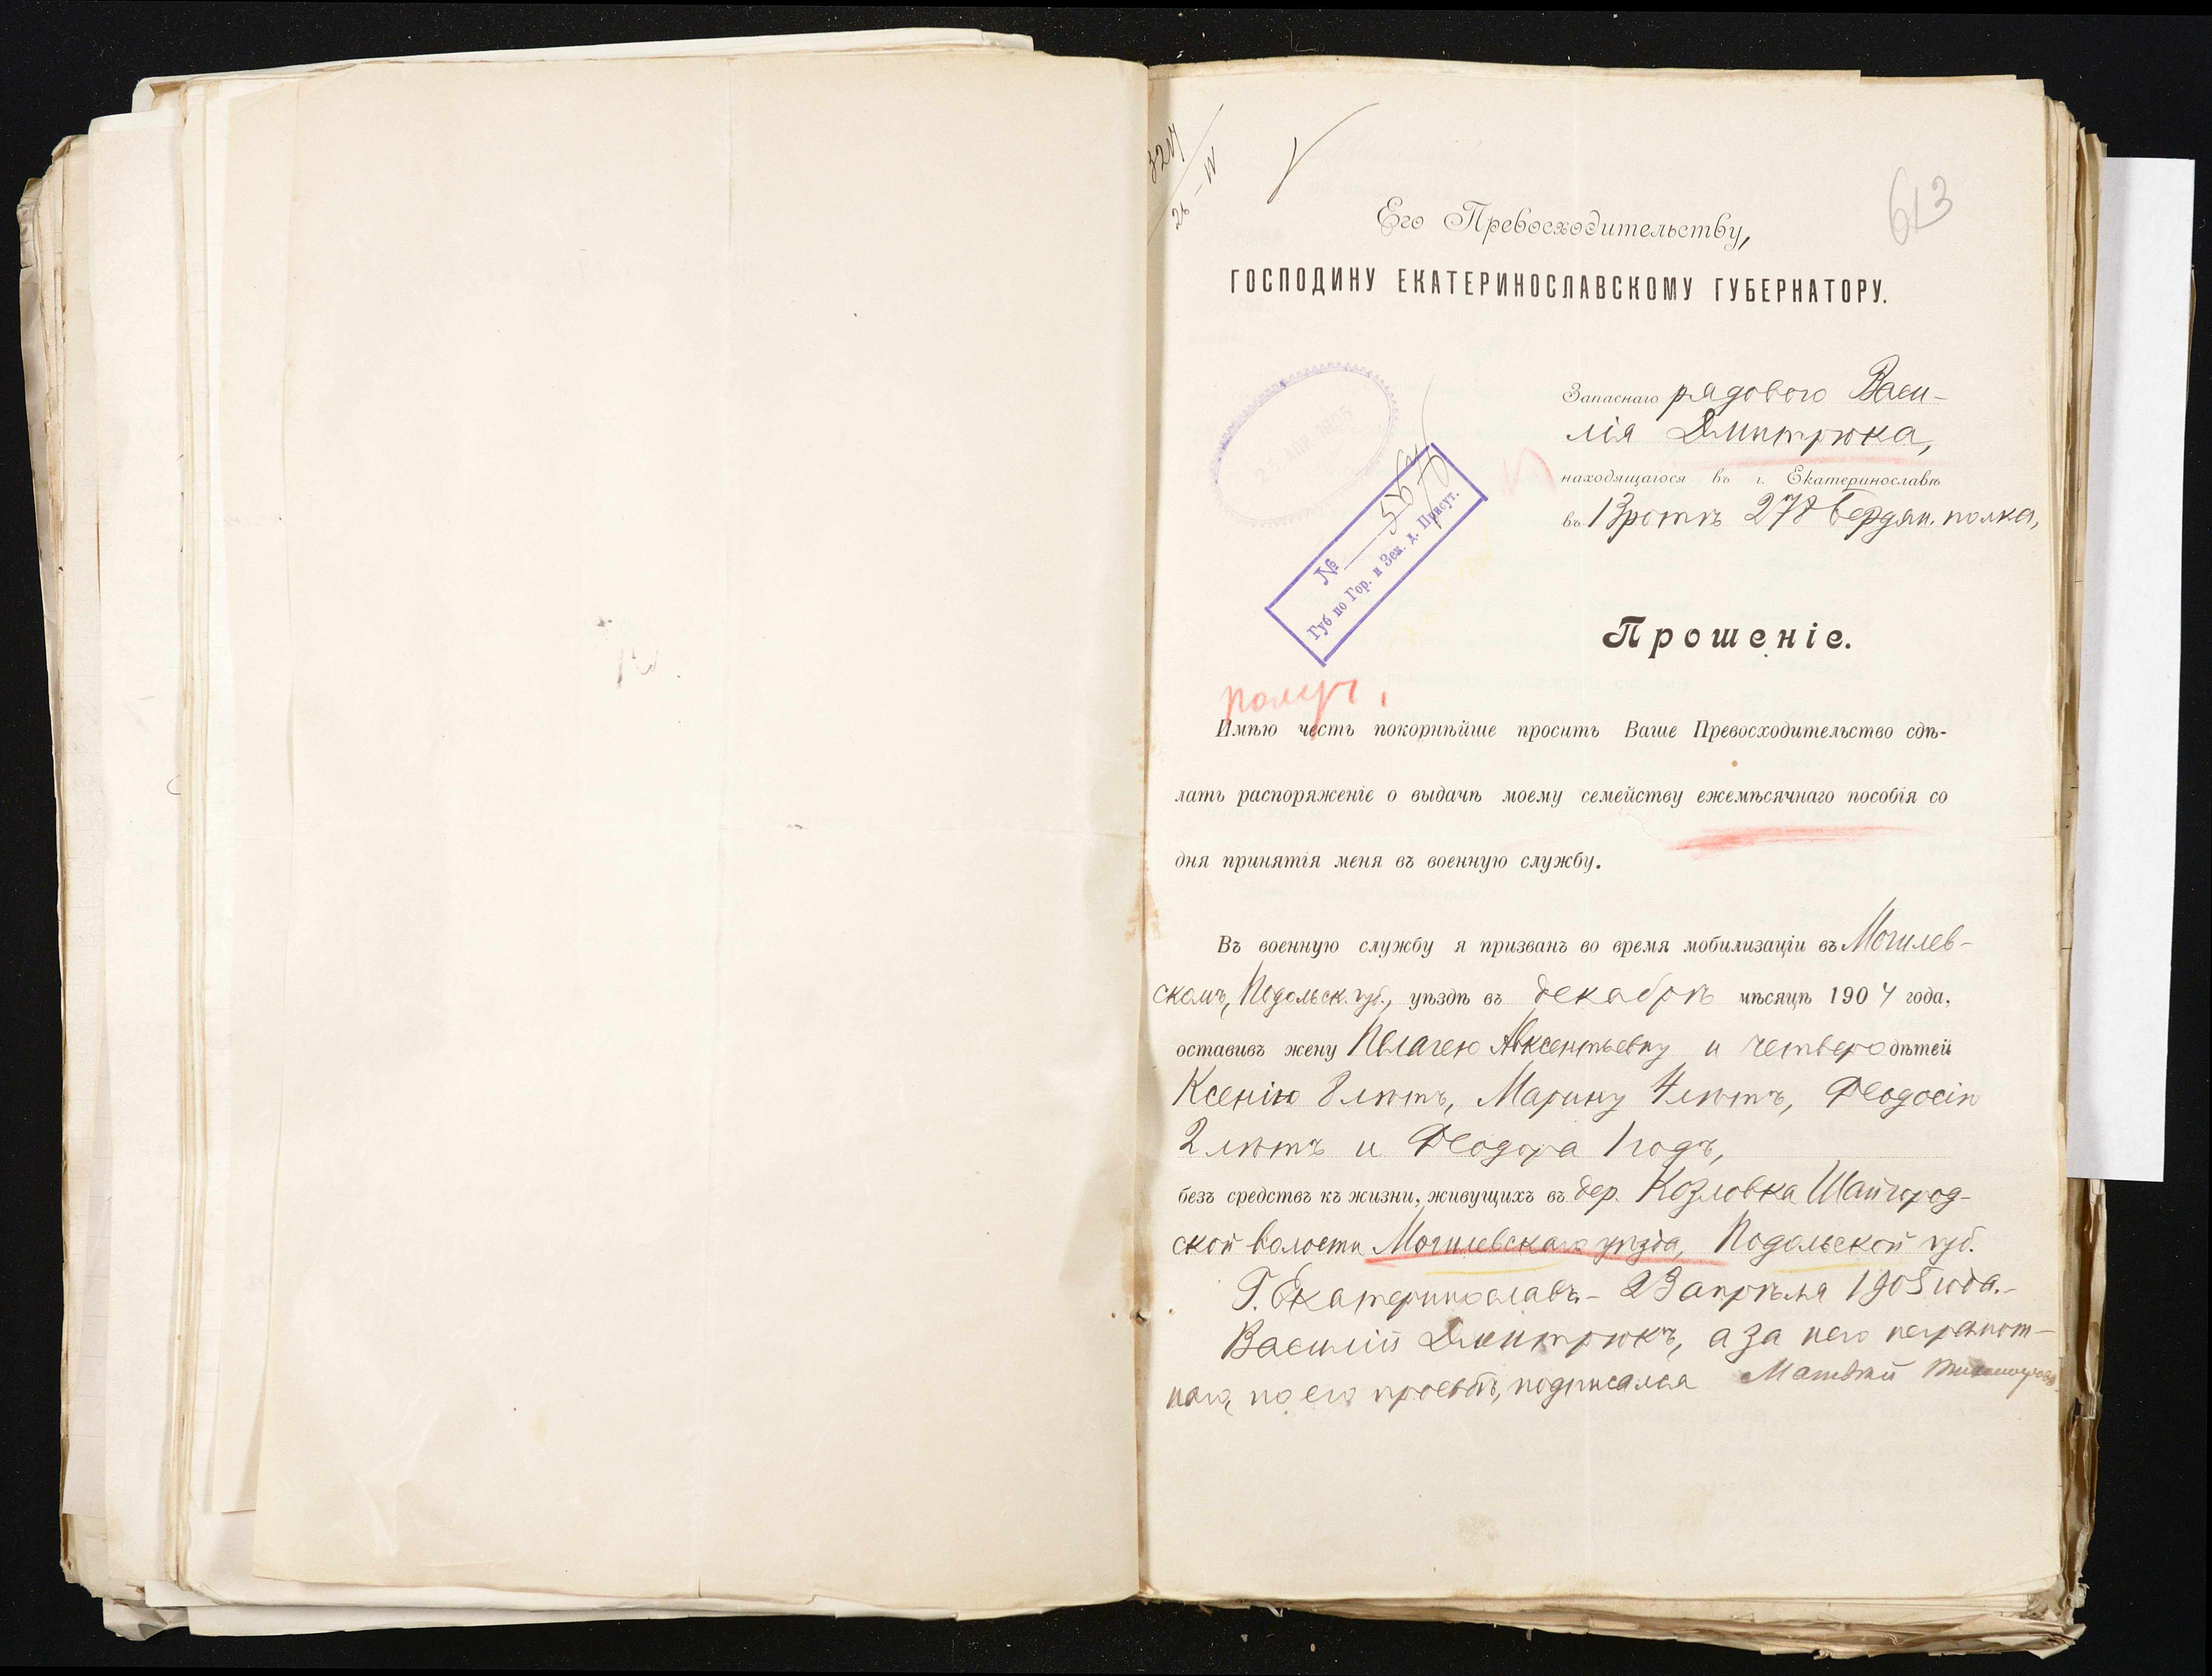 613
Его Превосходительству,
ГОСПОДИНУ ЕКАТЕРИНОСЛАВСКОМУ ГУБЕРНАТОРУ.
Запаснаго рядового Васи-
лія Дмитрюка,
находящагося въ г. Екатеринославѣ
въ 13 ротѣ 278 Бердян. полка,
25 АПР 1905
№
Губ по Гор. и Зем. д. Присут.
Прошеніе.
получ.
Имѣю честь покорнѣйше просить Ваше Превосходительство сдѣ-
лать распоряженіе о выдачѣ моему семейству ежемѣсячнаго пособія со
дня принятія меня въ военную службу.
Въ военную службу я призванъ во время мобилизаціи въ Могилев-
скомъ, Подольск. губ., уѣздѣ въ декабрѣ мѣсяцѣ 1904 года,
оставивъ жену Пелагею Авксентьевну и четверо дѣтей
Ксенію 8 лѣтъ, Марину 4 лѣтъ, Ѳеодосію
2 лѣтъ и Ѳеодора 1 годъ,
безъ средствъ къ жизни, живущихъ въ дер. Козловка Шайгород-
ской волости Могилевскаго уѣзда, Подольской губ.
Г. Екатеринославъ - 23 апрѣля 1905 года.-
Василій Дмитрюкъ, а за него неграмот-
наго, по его просьбѣ, подписался Матвѣй